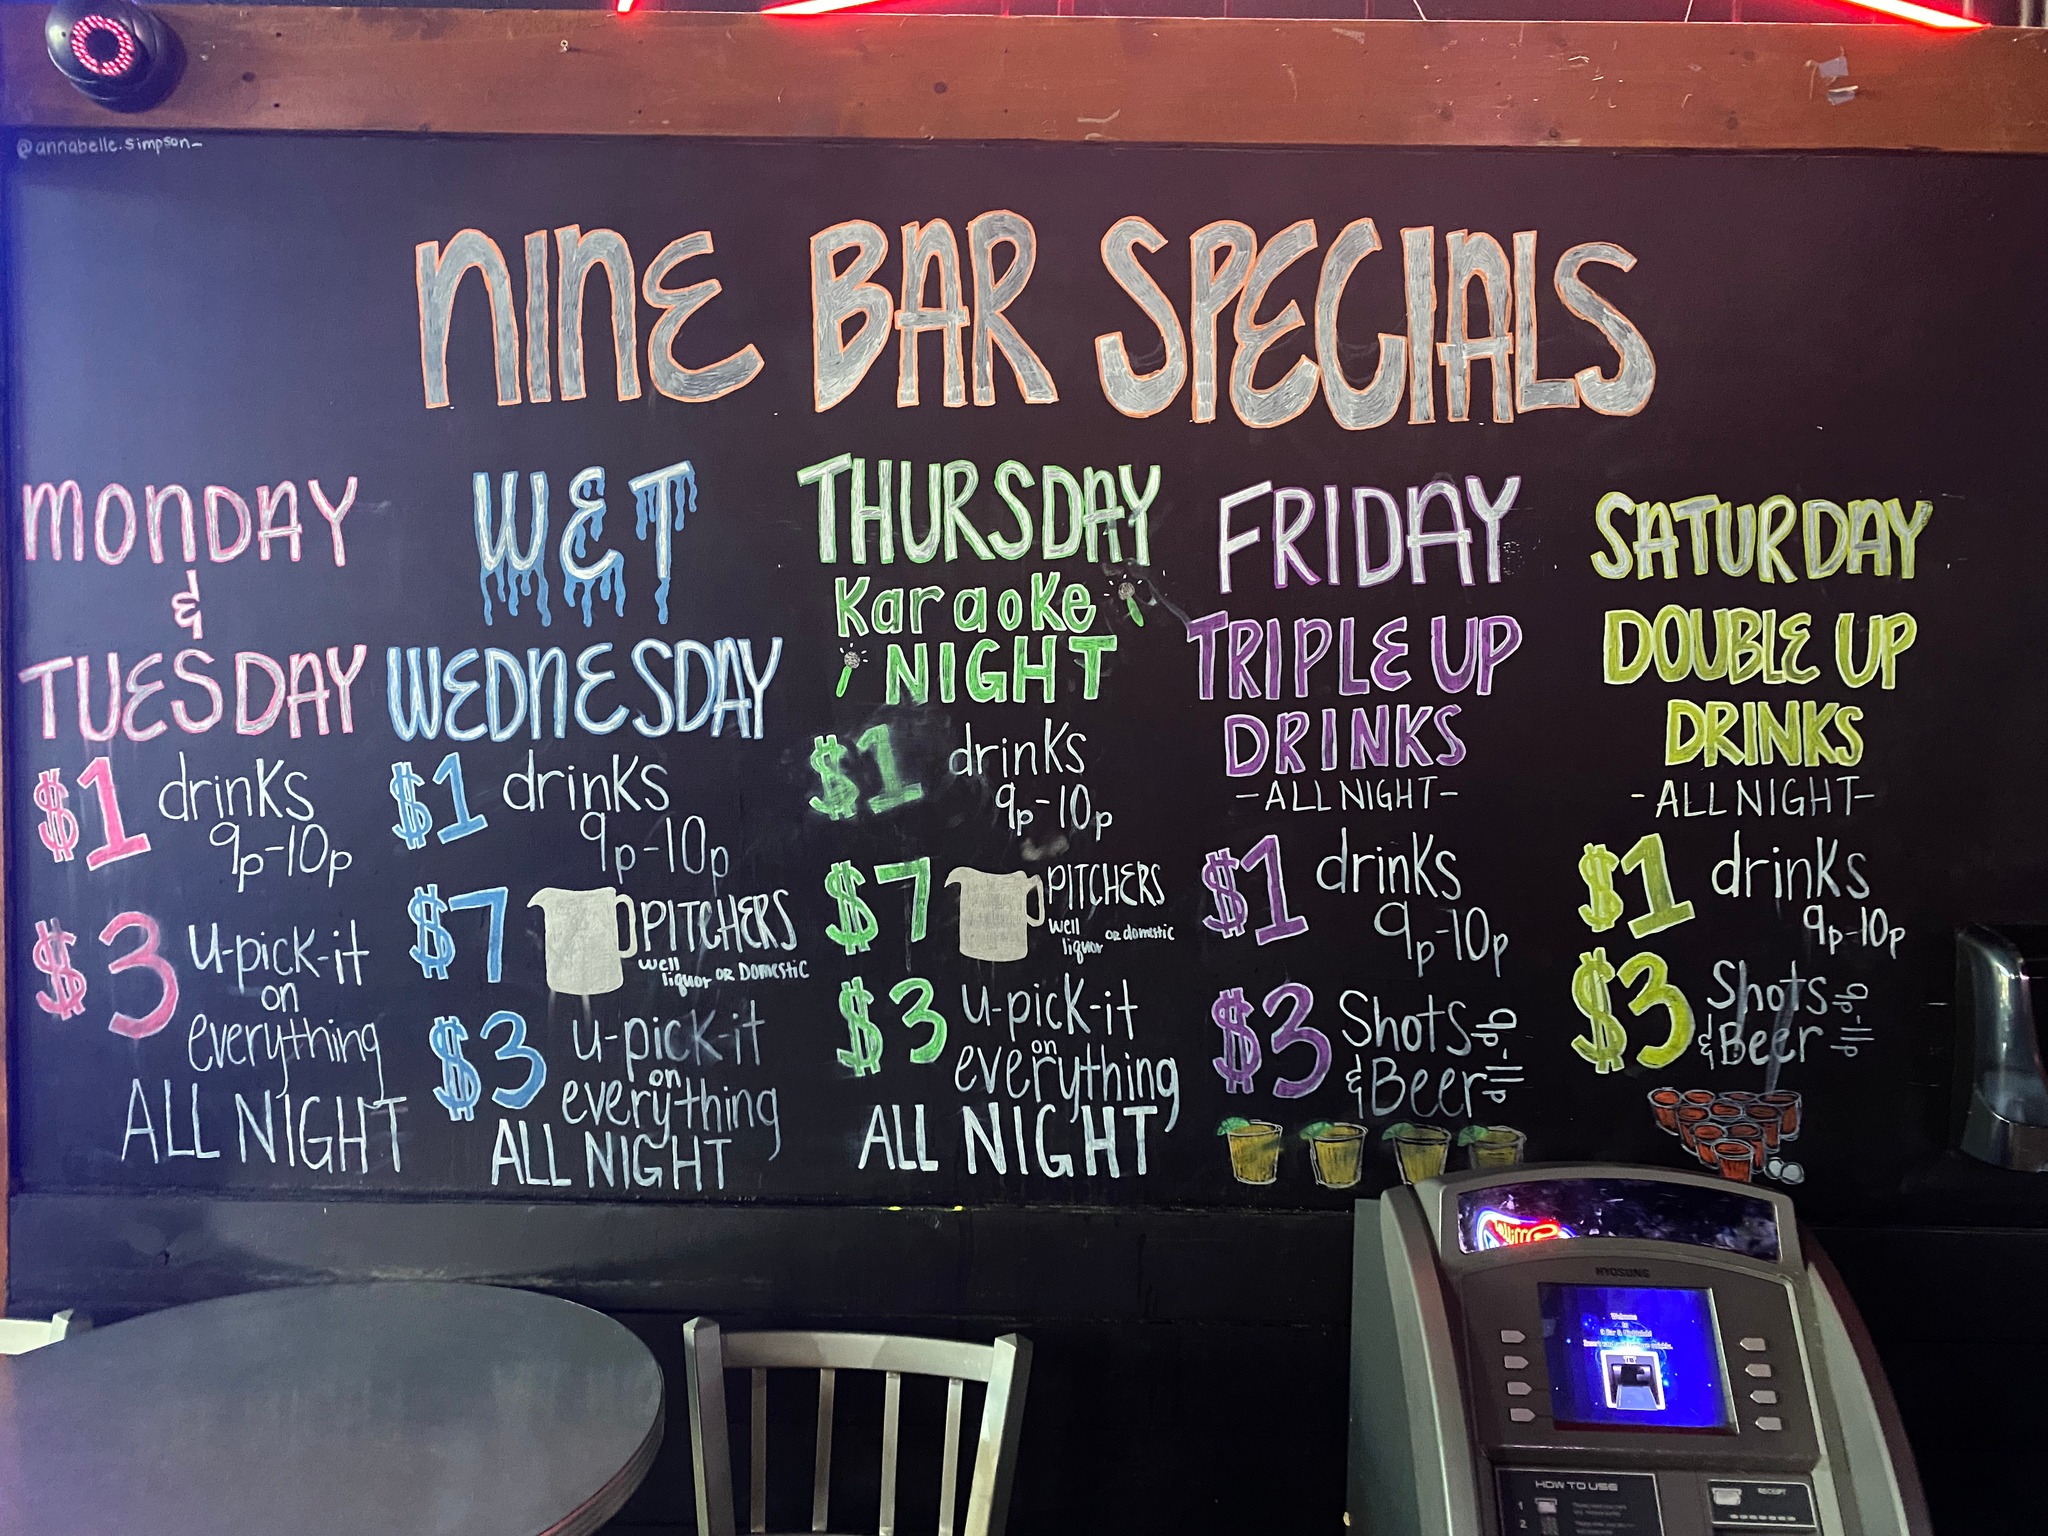 @annabelle.simpson_
NINE BAR SPECIALS
MONDAY
&
TUESDAY
$1 drinks
9p-10p
$3 u-pick-it
on
everything
ALL NIGHT
WET
WEDNESDAY
$1 drinks
9p-10p
$7 PITCHERS
well
liquor OR DOMESTIC
$3 u-pick-it
on
everything
ALL NIGHT
THURSDAY
Karaoke
NIGHT
$1 drinks
9p-10p
$7 PITCHERS
well
liquor OR domestic
$3 u-pick-it
on
everything
ALL NIGHT
FRIDAY
TRIPLE UP
DRINKS
-ALL NIGHT-
$1 drinks
9p-10p
$3 Shots
& Beer
9p-11p
SATURDAY
DOUBLE UP
DRINKS
-ALL NIGHT-
$1 drinks
9p-10p
$3 Shots
& Beer
9p-11p
HYOSUNG
Welcome
HOW TO USE
1
2
RECEIPT